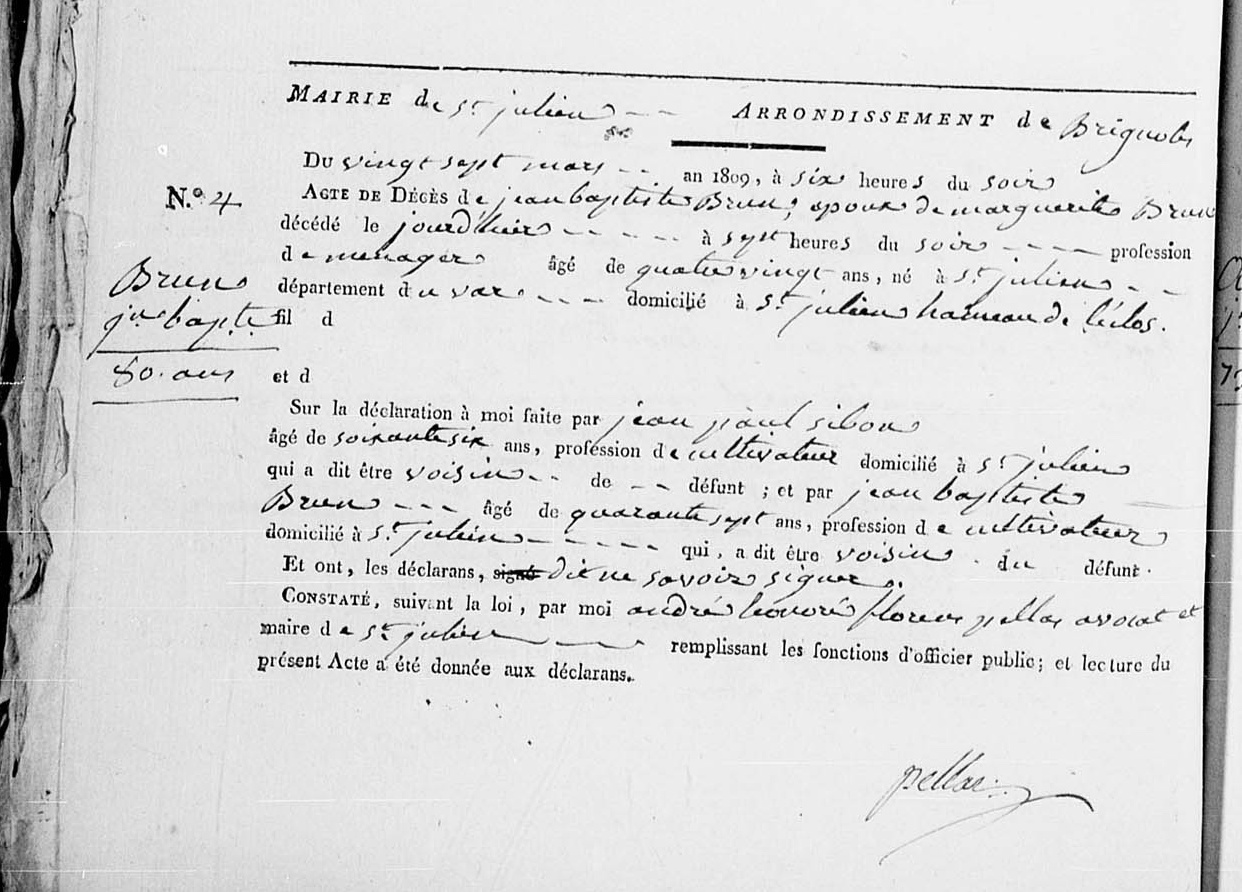 MAIRIE de St julien -- ARRONDISSEMENT de Brignoles
DU vingt sept mars -- an 1809, à six heures du soir
N.º 4
ACTE DE DÉCÈS de jean baptiste Brun, epoux de marguerite Brun
décédé le jourdhier ----- à sept heures du soir ---- profession
de menager âgé de quatre vingt ans, né à St julien --
département du var --- domicilié à St julien hameau de l'éclos.
Brun
jn bapte
80. ans
fil d
et d
Sur la déclaration à moi faite par jean paul sibon
âgé de soixante six ans, profession de cultivateur domicilié à St julien
qui a dit être voisin -- de -- défunt ; et par jean baptiste
Brun --- âgé de quarante sept ans, profession de cultivateur
domicilié à St julien ----- qui, a dit être voisin du défunt.
Et ont, les déclarans, signé dit ne savoir signer.
CONSTATÉ, suivant la loi, par moi andré honoré florens pellas avocat et
maire de St julien remplissant les fonctions d'officier public; et lecture du
présent Acte a été donnée aux déclarans.
pellas